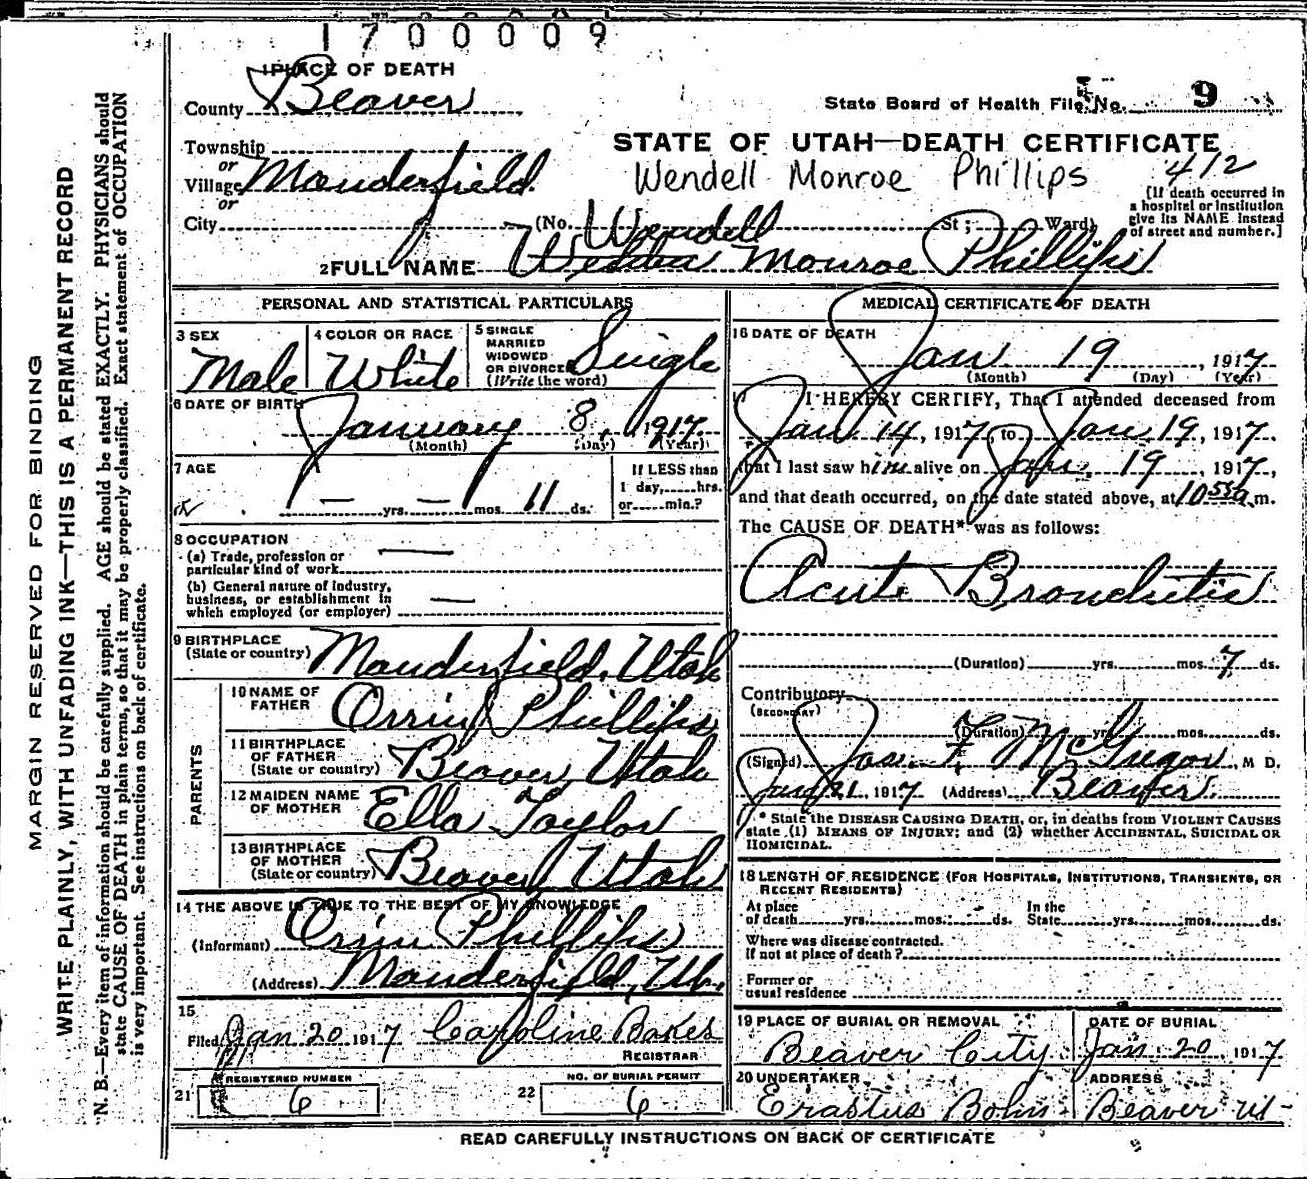 1700009
1 PLACE OF DEATH
County Beaver
State Board of Health File No. 9
Township
or
Village Manderfield
or
City
STATE OF UTAH—DEATH CERTIFICATE
Wendell Monroe Phillips
412
(No. St.; Ward)
[If death occurred in
a hospital or institution
give its NAME instead
of street and number.]
Wendell
2 FULL NAME Monroe Phillips
PERSONAL AND STATISTICAL PARTICULARS
3 SEX
Male
4 COLOR OR RACE
White
5 SINGLE
MARRIED
WIDOWED
OR DIVORCED
(Write the word)
Single
6 DATE OF BIRTH
January 8, 1917
(Month) (Day) (Year)
7 AGE
— yrs. — mos. 11 ds.
If LESS than
1 day, hrs.
or min.?
8 OCCUPATION
(a) Trade, profession or
particular kind of work —
(b) General nature of industry,
business, or establishment in
which employed (or employer) —
9 BIRTHPLACE
(State or country) Manderfield, Utah
PARENTS
10 NAME OF
FATHER Orrin Phillips
11 BIRTHPLACE
OF FATHER
(State or country) Beaver, Utah
12 MAIDEN NAME
OF MOTHER Ella Taylor
13 BIRTHPLACE
OF MOTHER
(State or country) Beaver Utah
14 THE ABOVE IS TRUE TO THE BEST OF MY KNOWLEDGE
(Informant) Orrin Phillips
(Address) Manderfield, Ut.
15
Filed Jan 20 1917 Caroline Bakes
REGISTRAR
21 REGISTERED NUMBER
6
22 NO. OF BURIAL PERMIT
6
MEDICAL CERTIFICATE OF DEATH
16 DATE OF DEATH
Jan. 19, 1917
(Month) (Day) (Year)
17 I HEREBY CERTIFY, That I attended deceased from
Jan 14, 1917, to Jan. 19, 1917.
that I last saw him alive on Jan. 19, 1917,
and that death occurred, on the date stated above, at 10 55 a m.
The CAUSE OF DEATH* was as follows:
Acute Bronchitis
(Duration) yrs. mos. 7 ds.
Contributory
(SECONDARY)
(Duration) yrs. mos. ds.
(Signed) Jas. F. McGregor, M D.
Jan 21, 1917 (Address) Beaver.
* State the DISEASE CAUSING DEATH, or, in deaths from VIOLENT CAUSES
state (1) MEANS OF INJURY; and (2) whether ACCIDENTAL, SUICIDAL OR
HOMICIDAL.
18 LENGTH OF RESIDENCE (FOR HOSPITALS, INSTITUTIONS, TRANSIENTS, OR
RECENT RESIDENTS)
At place In the
of death yrs. mos. ds. State yrs. mos. ds.
Where was disease contracted.
If not at place of death?
Former or
usual residence
19 PLACE OF BURIAL OR REMOVAL
Beaver City
DATE OF BURIAL
Jan 20, 1917
20 UNDERTAKER
Erastus Bohn
ADDRESS
Beaver Ut-
READ CAREFULLY INSTRUCTIONS ON BACK OF CERTIFICATE
MARGIN RESERVED FOR BINDING
WRITE PLAINLY, WITH UNFADING INK—THIS IS A PERMANENT RECORD
N. B.—Every item of information should be carefully supplied. AGE should be stated EXACTLY. PHYSICIANS should
state CAUSE OF DEATH in plain terms, so that it may be properly classified. Exact statement of OCCUPATION
is very important. See instructions on back of certificate.